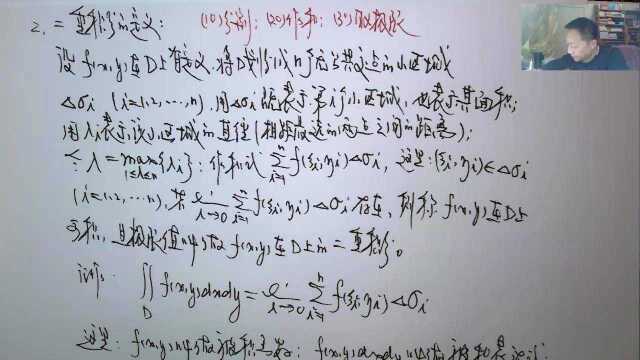 2. 二重积分的定义: (1°)分割; (2°)作和; (3°)取极限
设f(x,y)在D上有定义. 将D划分成n个无公共交点的小区域
Δσi (i=1,2,…,n). 用Δσi既表示第i个小区域, 也表示其面积;
用λi表示该小区域的直径(相距最远的两点之间的距离);
令 λ=max{λi}; 作和式 Σf(ξi,ηi)Δσi, 这里:(ξi,ηi)∈Δσi
1≤i≤n
(i=1,2,…,n), 若 λ→0 Σf(ξi,ηi)Δσi 存在, 则称 f(x,y)在D上
可积, 且极限值叫做f(x,y)在D上的二重积分。
记作: ∬f(x,y)dxdy = λ→0 Σf(ξi,ηi)Δσi
D
这里: f(x,y)叫做被积函数; f(x,y)dxdy叫做被积表达式